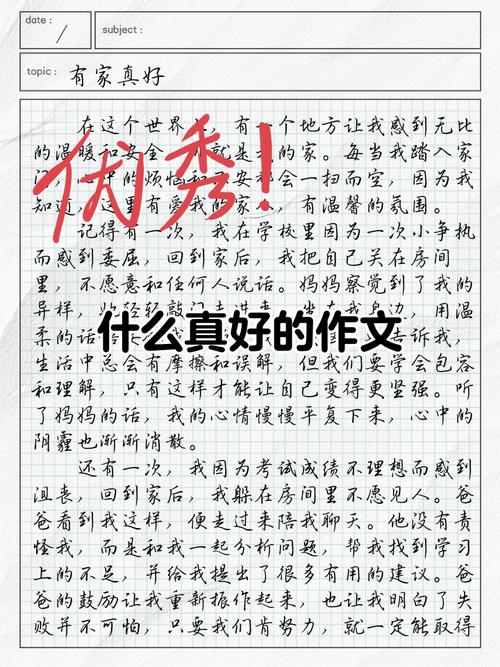 date :
subject :
topic : 有家真好
在这个世界，有一个地方让我感到无比
的温暖和安全，就是我的家。每当我踏入家
中的烦恼和不安都会一扫而空，因为我
知道，这里有爱我的家，有温馨的氛围。
优秀！
记得有一次，我在学校里因为一次小争执
而感到委屈，回到家后，我把自己关在房间
里，不愿意和任何人说话。妈妈察觉到了我的
异样，轻轻敲门走进来，坐在我身边，用温
什么真好的作文
柔的话告诉我，
生活中总会有摩擦和误解，但我们要学会包容
和理解，只有这样才能让自己变得更坚强。听
了妈妈的话，我的心情慢慢平复下来，心中的
阴霾也渐渐消散。
还有一次，我因为考试成绩不理想而感到
沮丧，回到家后，我躲在房间里不愿见人。爸
爸看到我这样，便走过来陪我聊天。他没有责
怪我，而是和我一起分析问题，帮我找到学习
上的不足，并给我提出了很多有用的建议。爸
爸的鼓励让我重新振作起来，也让我明白了失
败并不可怕，只要我们肯努力，就一定能取得